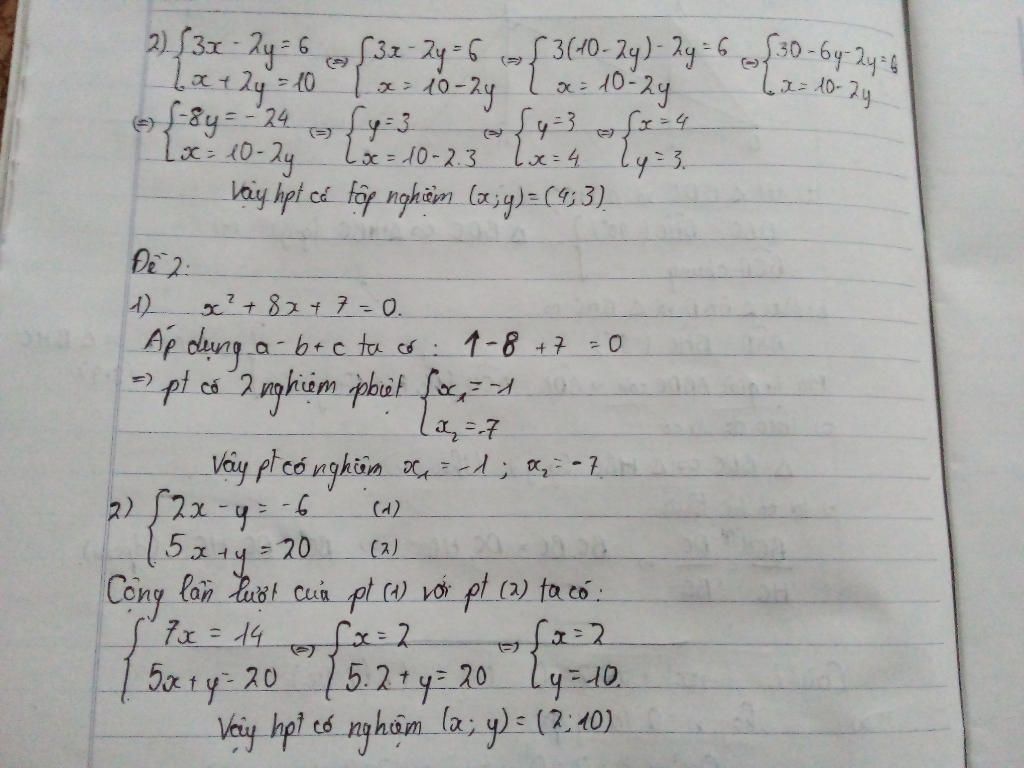 2) {3x - 2y = 6 <=> {3x - 2y = 6 <=> {3(10 - 2y) - 2y = 6 <=> {30 - 6y - 2y = 6
x + 2y = 10 x = 10 - 2y x = 10 - 2y x = 10 - 2y
<=> {-8y = -24 <=> {y = 3 <=> {y = 3 <=> {x = 4
x = 10 - 2y x = 10 - 2.3 x = 4 y = 3.
Vậy hpt có tập nghiệm (x; y) = (4; 3)
Đề 2:
1) x² + 8x + 7 = 0.
Áp dụng a - b + c ta có: 1 - 8 + 7 = 0
=> pt có 2 nghiệm pbiệt {x₁ = -1
x₂ = -7
Vậy pt có nghiệm x₁ = -1 ; x₂ = -7
2) {2x - y = -6 (1)
5x + y = 20 (2)
Cộng lần lượt của pt (1) với pt (2) ta có:
{7x = 14 <=> {x = 2 <=> {x = 2
5x + y = 20 5.2 + y = 20 y = 10.
Vậy hpt có nghiệm (x; y) = (2; 10)